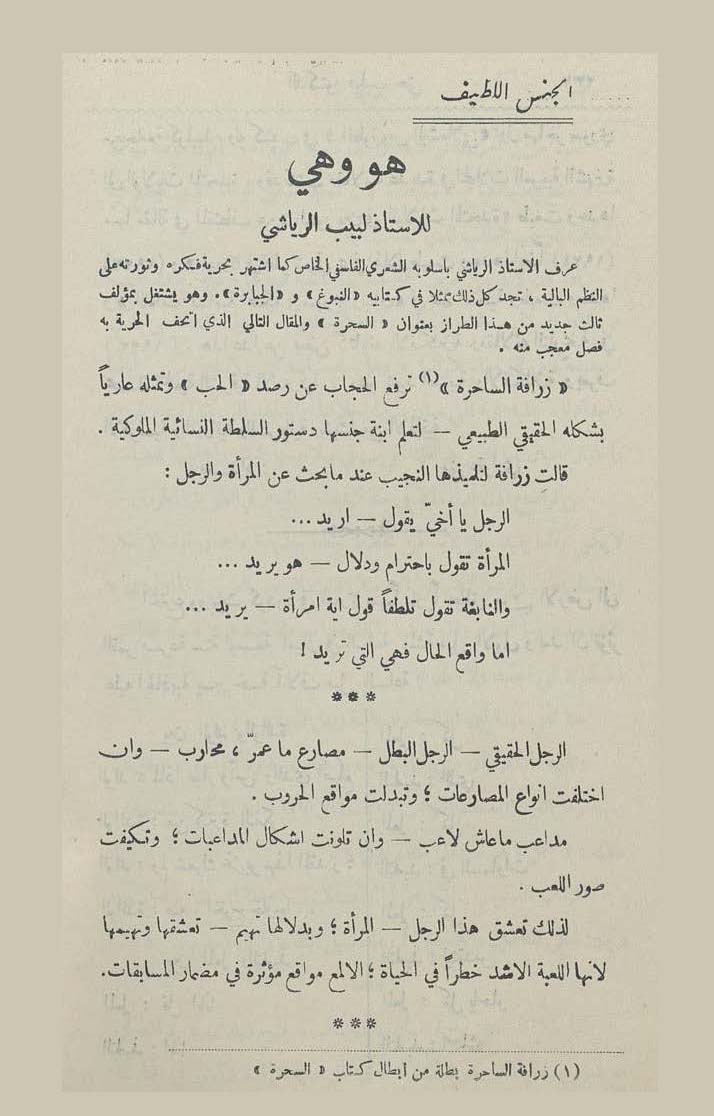 الجنس اللطيف
هو وهي
للاستاذ لبيب الرياشي
عرف الاستاذ الرياشي باسلوبه الشعري الفلسفي الخاص كما اشتهر بحرية فكره وثورته على
النظم البالية ، تجد كل ذلك ممثلا في كتابيه «النبوغ» و «الجبابرة». وهو يشتغل بمؤلف
ثالث جديد من هذا الطراز بعنوان « السحرة » والمقال التالي الذي اتحف الحرية به
فصل معجب منه .
« زرافة الساحرة »(١) ترفع الحجاب عن رصد « الحب » وتمثله عارياً
بشكله الحقيقي الطبيعي – لتعلم ابنة جنسها دستور السلطة النسائية الملوكية .
قالت زرافة لتلميذها النجيب عند مابحث عن المرأة والرجل :
الرجل يا أخيّ يقول – اريد ...
المرأة تقول باحترام ودلال – هو يريد ...
والنابغة تقول تلطفاً قول اية امرأة – يريد ...
اما واقع الحال فهي التي تريد !
***
الرجل الحقيقي – الرجل البطل – مصارع ما عمرّ ، محارب – وان
اختلفت انواع المصارعات ؛ وتبدلت مواقع الحروب .
مداعب ماعاش لاعب – وان تلونت اشكال المداعبات ؛ وتكيفت
صور اللعب .
لذلك تعشق هذا الرجل – المرأة ؛ وبدلالها تهيم – تعشقها وتهيمها
لانها اللعبة الاشد خطراً في الحياة ؛ الالمع مواقع مؤثرة في مضمار المسابقات.
***
(١) زرافة الساحرة بطلة من ابطال كتاب « السحرة »